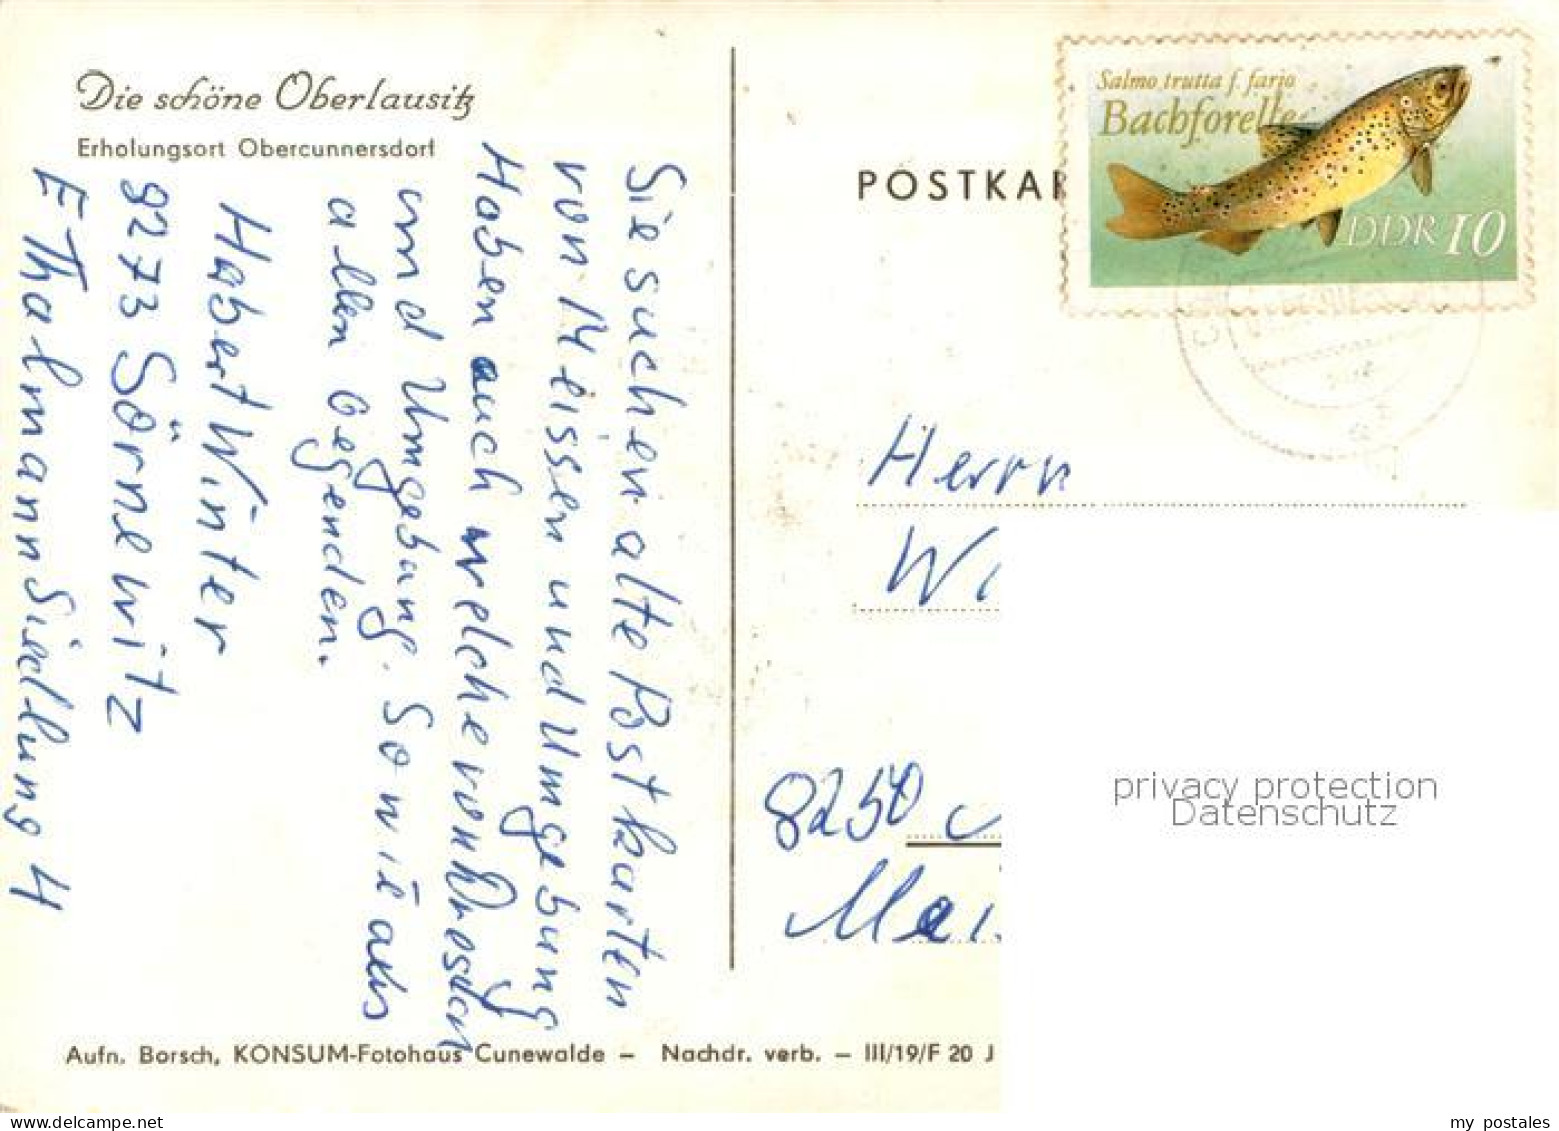 Die schöne Oberlausitz
Erholungsort Obercunnersdorf
Sie suchen alte Postkarten
von Meissen und Umgebung
Haben auch welche von Dresden
und Umgebung. Sowie aus
allen Gegenden.
Habert Winter
8273 Sörnewitz
E Thalmann Siedlung 4
POSTKAR
Salmo trutta f. fario
Bachforelle
DDR 10
Herrn
Wi
8250
Mei
privacy protection
Datenschutz
Aufn. Borsch, KONSUM-Fotohaus Cunewalde – Nachdr. verb. – III/19/F 20 J
my postales